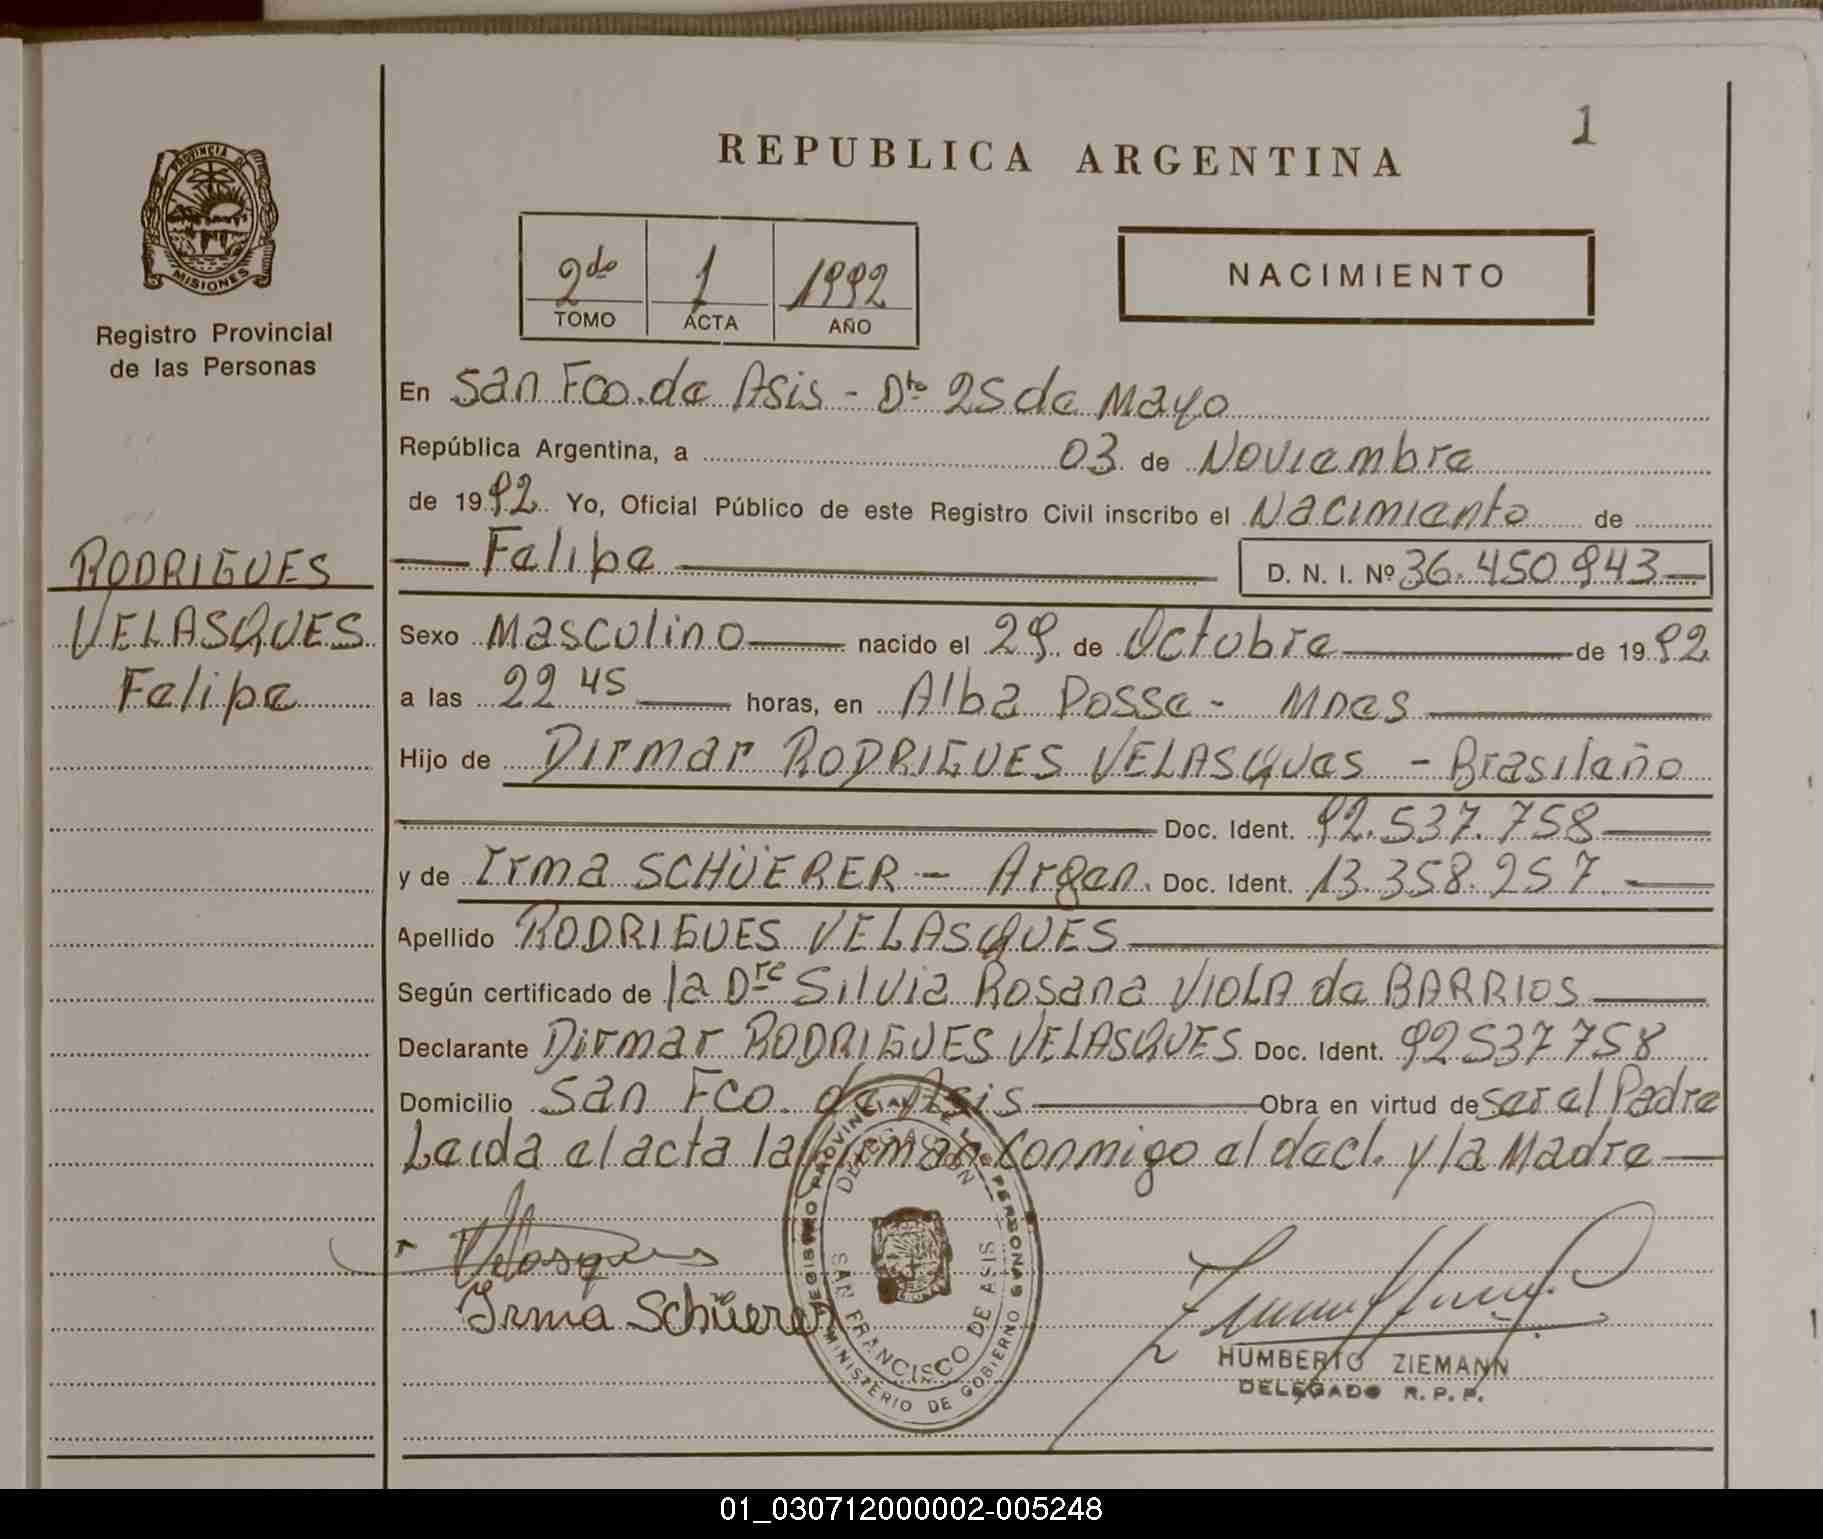 1
REPUBLICA ARGENTINA
PROVINCIA DE
MISIONES
Registro Provincial
de las Personas
2do 1 1992
TOMO ACTA AÑO
NACIMIENTO
En San Fco. de Asis - Dto 25 de Mayo
República Argentina, a 03 de Noviembre
de 1992 Yo, Oficial Público de este Registro Civil inscribo el Nacimiento de
Felipe D. N. I. Nº 36.450.943
RODRIGUES
VELASQUES
Felipe
Sexo Masculino nacido el 29 de Octubre de 1992
a las 22 45 horas, en Alba Posse - Mnes
Hijo de Dirmar RODRIGUES VELASQUes - Brasileño
Doc. Ident. 92.537.758
y de Irma SCHÜERER - Argen. Doc. Ident. 13.358.257
Apellido RODRIGUES VELASQUES
Según certificado de la Dre Silvia Rosana VIOLA de BARRIOS
Declarante Dirmar RODRIGUES VELASQUES Doc. Ident. 92537758
Domicilio San Fco. de Asis Obra en virtud de ser el Padre
Leida el acta la firman conmigo el decl. y la Madre
Velasques
Irma Schüerer
REGISTRO PROVINCIAL DE LAS PERSONAS
MINISTERIO DE GOBIERNO
DELEGACION
SAN FRANCISCO DE ASIS
HUMBERTO ZIEMANN
DELEGADO R.P.P.
01_030712000002-005248